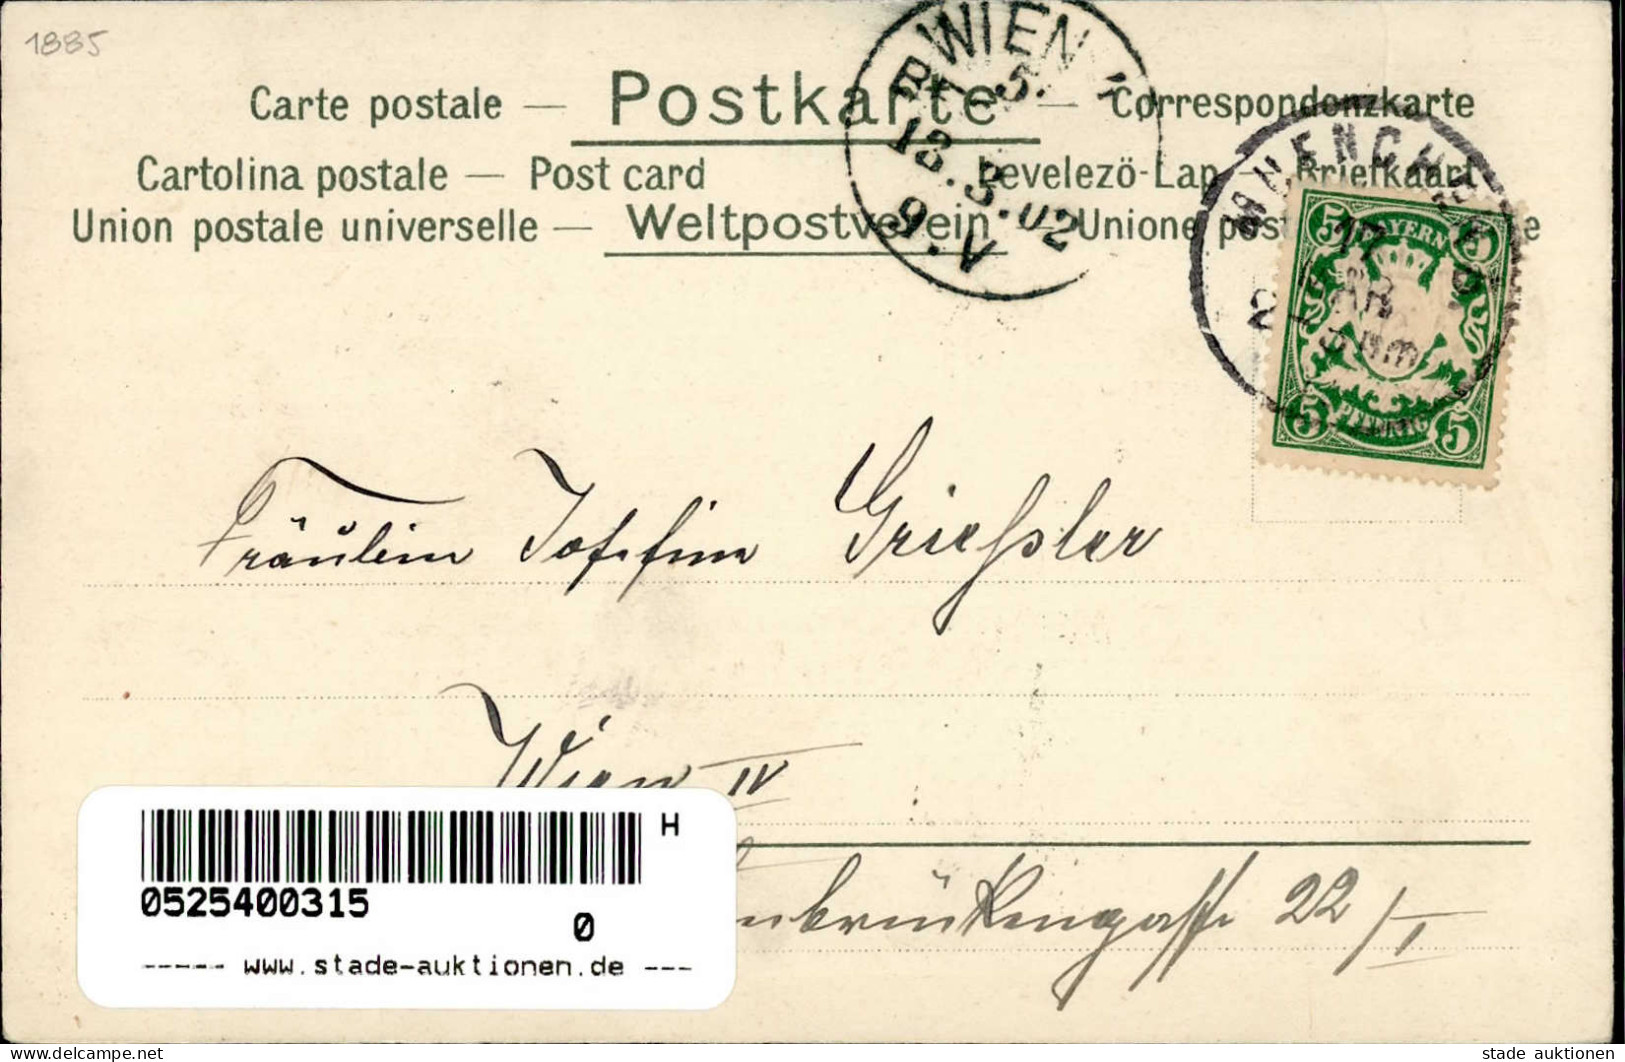 1885
Carte postale — Postkarte — Correspondenzkarte
Cartolina postale — Post card Levelezö-Lap — Briefkaart
Union postale universelle — Weltpostverein — Unione postale
WIEN
18.3.02
9.V
MUENCHEN
17 MÄR
BAYERN
5 5
PFENNIG
5 5
Fräulein Josefine Griessler
Wien IV
22/I
H
0525400315
0
----- www.stade-auktionen.de ---
www.delcampe.net
stade auktionen